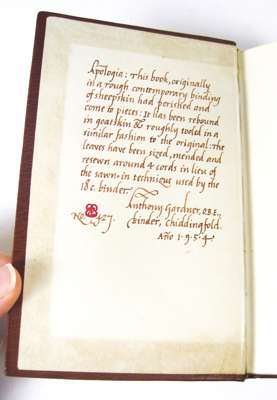 Apologia: This book, originally
in a rough contemporary binding
of sheepskin had perished and
come to pieces: It has been rebound
in goatskin & roughly tooled in a
similar fashion to the original: The
leaves have been sized, mended and
resewn around 4 cords in lieu of
the sawn-in technique used by the
18c. binder.
Anthony Gardner, O.B.E.,
binder, Chiddingfold.
No. 427.
Año 1·9·5·4